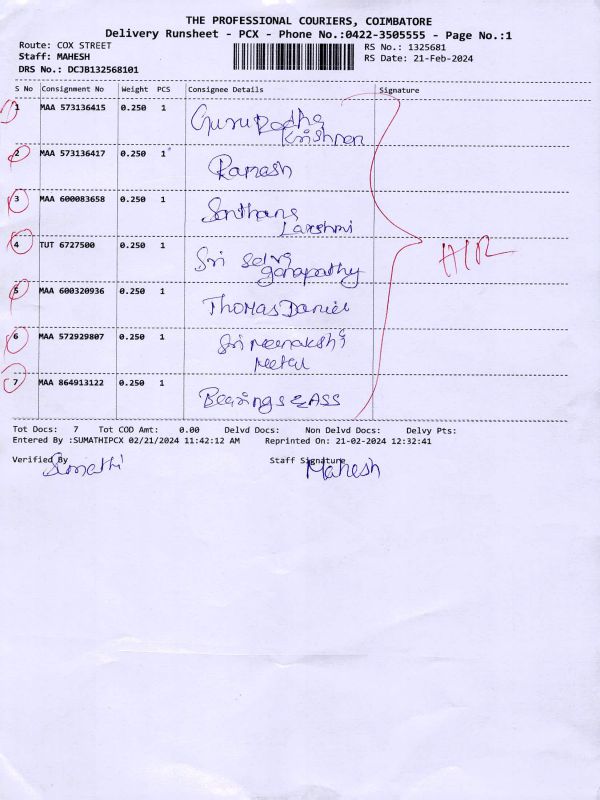 THE PROFESSIONAL COURIERS, COIMBATORE
Delivery Runsheet - PCX - Phone No.:0422-3505555 - Page No.:1
Route: COX STREET RS No.: 1325681
Staff: MAHESH RS Date: 21-Feb-2024
DRS No.: DCJB132568101
S No Consignment No Weight PCS Consignee Details Signature
1 MAA 573136415 0.250 1 Guru Radha
Krishnan
2 MAA 573136417 0.250 1 Ramesh
3 MAA 600083658 0.250 1 Santhana
Lakshmi
4 TUT 6727500 0.250 1 Sri Selva
ganapathy
5 MAA 600320936 0.250 1 Thomas Daniel
6 MAA 572929807 0.250 1 Sri Meenakshi
Metal
7 MAA 864913122 0.250 1 Bearings & ASS
Tot Docs: 7 Tot COD Amt: 0.00 Delvd Docs: Non Delvd Docs: Delvy Pts:
Entered By :SUMATHIPCX 02/21/2024 11:42:12 AM Reprinted On: 21-02-2024 12:32:41
Verified By Staff Signature
Sumathi Mahesh